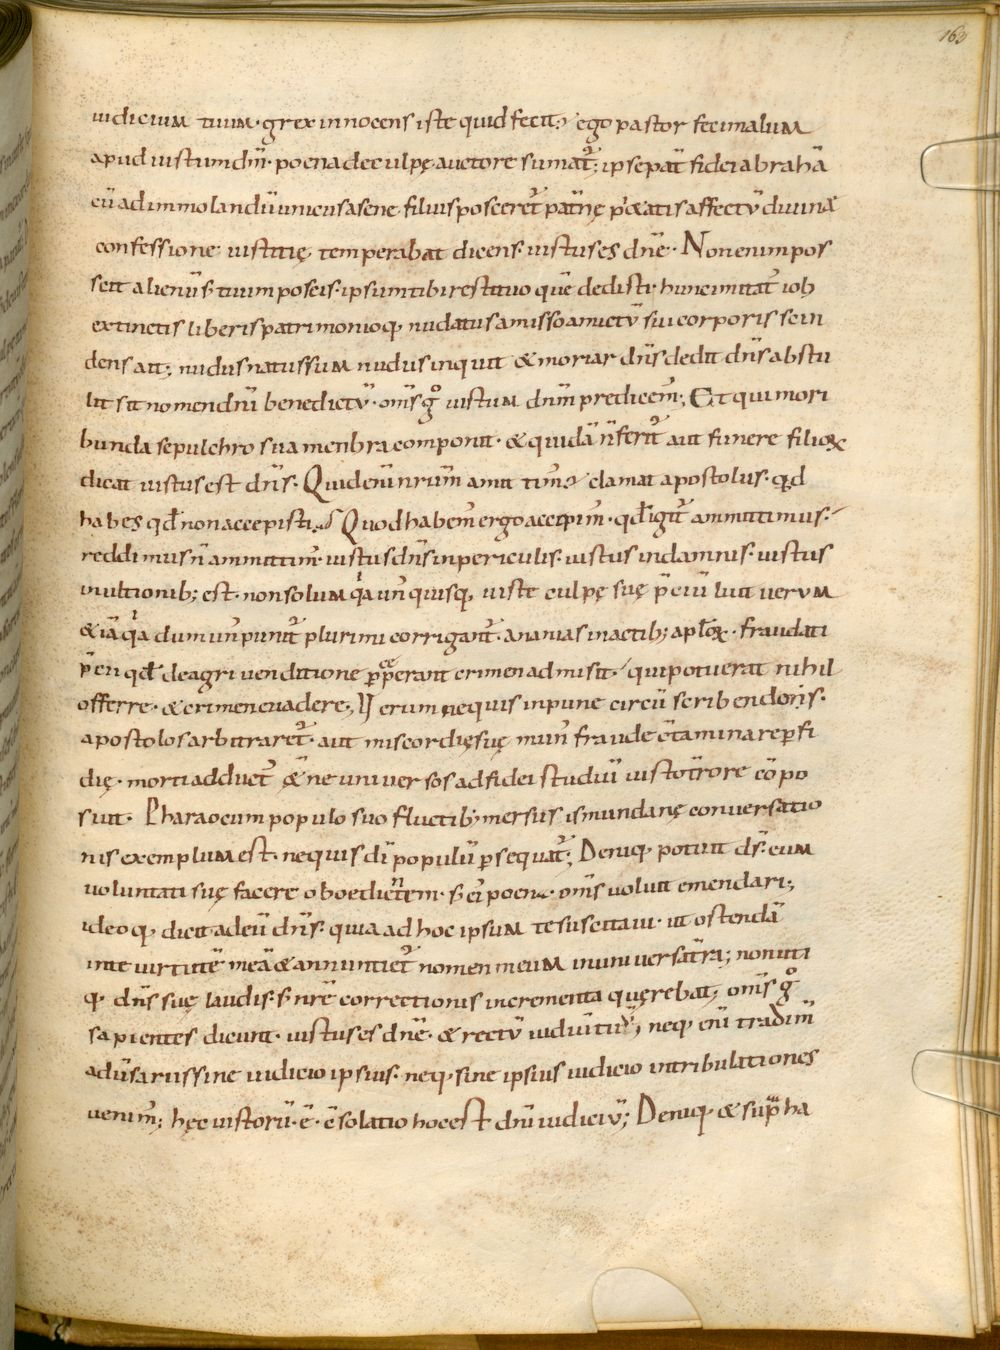 163
iudicium tuum· grex innocens iste quid fecit? ego pastor feci malum
apud iustum dm̄· poena de culpę auctore sumat᷑; ipse pat̄ fidei abrahā
cū ad immolandū unicus a sene filius posceret᷑ pat̄nę p̄&atis affectū diuina
confessione iustitię temperabat dicens· iustus es dn̄e· Non enim pos
seit alienū· tuum poscis· ipsum tibi restituo quē dedisti· hunc imitat᷑ iob
extinctis liberis patrimonioq· nudatus amisso amictū sui corporis scin
dens ait; nudus natus sum nudus inquit & moriar dn̄s dedit dn̄s abstu
lit sit nomen dn̄i benedictū· om̄s g̊ iustum dn̄m predicem᷑; Et qui mori
bunda sepulchro sua menbra componit· & quidā n̄ferit᷑ aut funere filioꝝ
dicat iustus est dn̄s· Quid enī nr̄um amit tim᷑? clamat apostolus· qd
habes qd̄ non accepisti· Quod habem᷑ ergo accipim᷑· qd̄ igit᷑ ammittimus·
reddimus n̄ ammittim᷑· iustus dn̄s in periculis· iustus in damnis· iustus
in ultionib; est· non solum qa un᷑ quisq, iuste culpę suę p̄ciū luit uerum
& iā qa dum un᷑ punit᷑ plurimi corrigant᷑· ananias in actib; aplōꝝ· fraudati
p̄cii qd̄ de agri uenditione pꝑerant crimen admisit· qui potuerat nihil
offerre· & crimen euadere; Uerum ne quis inpune circū scribendos·
apostolos arbitraret᷑· aut miscordię suę mun᷑ fraude c̄taminare ꝑfi
dię· morti adduct᷑ & n̄e uniuersos ad fidei studiū iusto t̄rore cōpo
suit· Pharao cum populo suo fluctib; mersus· is mundanę conuersatio
nis exemplum est· ne quis dī populū ꝑsequat᷑; Deniq, potuit ds̄· eum
uoluntati suę facere oboedientem· s; ei poena· om̄s uoluit emendari;
ideoq, dicit ad eū dn̄s· quia ad hoc ipsum te suscitaui· ut ostendā
in te uirtutē meā & annuntiet᷑ nomen meum in uniuersa t̄ra; non uti
q, dn̄s suę laudis· s; nr̄e correctionis incrementa quęrebat; om̄s g̊
sapientes dicunt· iustus es dn̄e· & rectū iudiciū tuū; neq, enī tradim᷑
aduersariis sine iudicio ipsius· neq, sine ipsius iudicio in tribulationes
uenim᷑; hęc iustorū· ē· c̄solatio hoc est dn̄i iudiciū; Deniq, & sup̄ ha